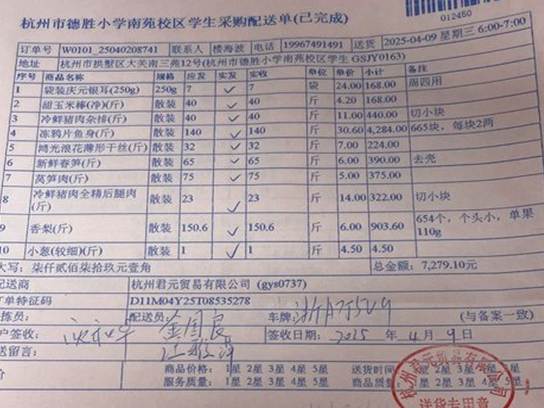 012450
杭州市德胜小学南苑校区学生采购配送单(已完成)
订单号 W0101_25040208741 联系人 楼海波 电话 19967491491 送货 2025-04-09 星期三 6:00-7:00
地址 杭州市拱墅区大关南三苑12号(杭州市德胜小学南苑校区学生 GSJY0163)
序号 商品名称 规格 应发 实发 实收 单位 单价 小计 备注
1 袋装庆元银耳(250g) 250g 7 ✓ 7 袋 24.00 168.00 周四用
2 甜玉米棒(净)(斤) 散装 40 ✓ 40 斤 4.20 168.00
3 冷鲜猪肉杂排(斤) 散装 40 ✓ 40 斤 11.00 440.00 切小块
4 冻鸦片鱼身(斤) 散装 140 ✓ 140 斤 30.60 4,284.00 665块，每块2两
5 鸿光浪花薄形干丝(斤) 散装 32 ✓ 32 斤 7.00 224.00
6 新鲜春笋(斤) 散装 65 ✓ 65 斤 6.00 390.00 去壳
7 莴笋肉(斤) 散装 75 ✓ 75 斤 5.00 375.00
8 冷鲜猪肉全精后腿肉(斤) 散装 23 ✓ 23 斤 14.00 322.00 切小块
9 香梨(斤) 散装 150.6 ✓ 150.6 斤 6.00 903.60 654个，个头小，单果110g
10 小葱(较细)(斤) 散装 1 ✓ 1 斤 4.50 4.50
大写：柒仟贰佰柒拾玖元壹角 总金额：7,279.10元
配送商 杭州君元贸易有限公司 (gys0737)
订单特征码 D11M04Y25T08535278
拣员: 配送员: 车牌: (与备案一致)
户签收: 签收日期: 2025 年 4 月 9 日
送留言:
评价 商品价格: 1星 2星 3星 4星 5星 送货时间
服务质量: 1星 2星 3星 4星 5星 商品质量
杭州君元贸易有限公司
送货专用章